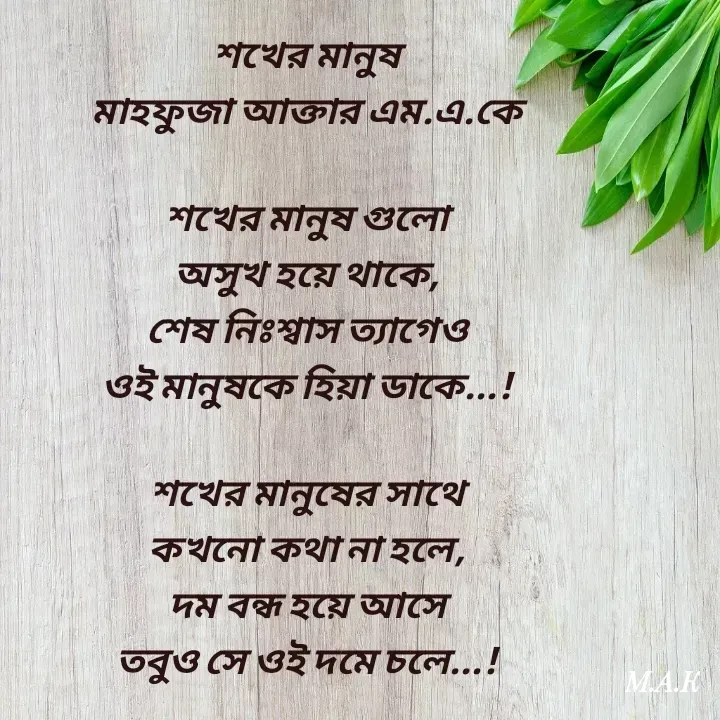 শখের মানুষ
মাহফুজা আক্তার এম.এ.কে
শখের মানুষ গুলো
অসুখ হয়ে থাকে,
শেষ নিঃশ্বাস ত্যাগেও
ওই মানুষকে হিয়া ডাকে...!
শখের মানুষের সাথে
কখনো কথা না হলে,
দম বন্ধ হয়ে আসে
তবুও সে ওই দমে চলে...!
M.A.K